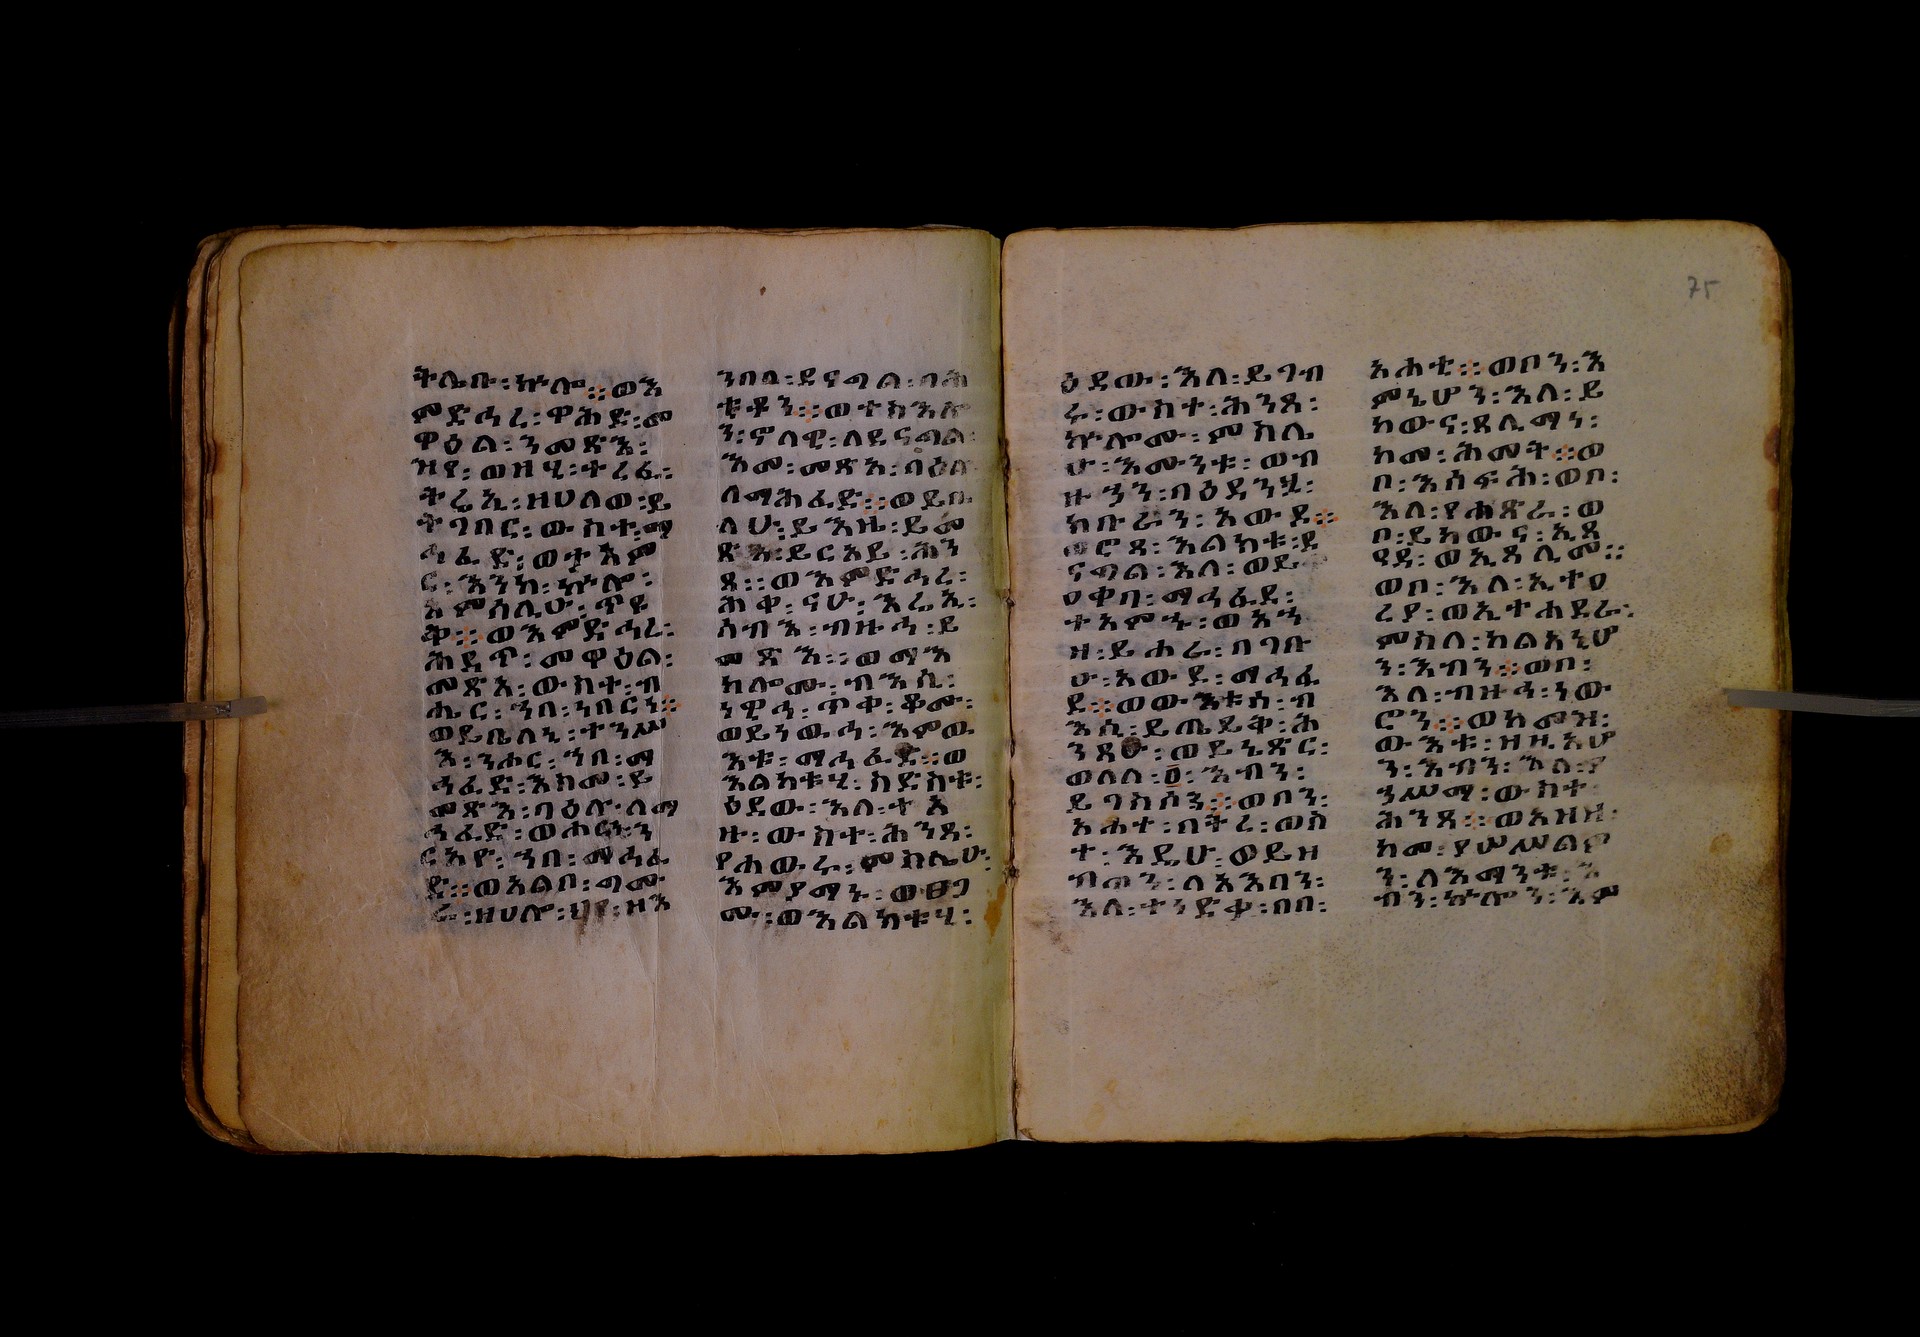 ትሌቡ፡ኵሎ።ወእ
ምድኅረ፡ዋሕድ፡መ
ዋዕል፡ንመጽእ፡
ዝየ፡ወዘሂ፡ተረፈ፡
ትሬኢ፡ዘሀለወ፡ይ
ትገበር፡ውስተ፡ማ
ኅፈድ፡ወተአም
ር፡እንከ፡ኵሎ፡
አምሳሊሁ፡ጥዩ
ቅ።ወእምድኅረ፡
ሕዳጥ፡መዋዕል፡
መጽአ፡ውስተ፡ብ
ሔር፡ኀበ፡ነበርነ።
ወይቤለኒ፡ተንሥ
እ፡ንሖር፡ኀበ፡ማ
ኅፈድ፡እስመ፡ይ
መጽእ፡በዕሉ፡ለማ
ኅፈድ፡ወሖርነ፡ን
ርአዮ፡ኀበ፡ማኅፈ
ድ።ወአልቦ፡ግሙ
ራ፡ዘሀሎ፡ህየ፡ዘእ
ንበለ፡ደናግል፡ባሕ
ቲቶን።ወተስእሎ
ን፡ኖላዊ፡ለደናግል፡
እመ፡መጽአ፡በዕለ
ለማሕፈድ።ወይቤ
ላሁ፡ይእዜ፡ይመ
ጽእ፡ይርአይ፡ሕን
ጻ።ወእምድኅረ፡
ሕቀ፡ናሁ፡እሬኢ፡
ሰብእ፡ብዙኅ፡ይ
መጽእ።ወማእ
ከሎሙ፡ብእሲ፡
ነዊኅ፡ጥቀ፡ቆሙ፡
ወይነውኅ፡እምዉ
እቱ፡ማኅፈድ።ወ
እልክቱሂ፡ስድስቱ፡
ዕደው፡እለ፡ተአ
ዙ፡ውስተ፡ሕንጻ፡
የሐውሩ፡ምስሌሁ፡
እምያማኑ፡ወፀጋ
ሙ፡ወእልክቱሂ፡
ዕደው፡እለ፡ይገብ
ሩ፡ውስተ፡ሕንጻ፡
ኵሎሙ፡ምስሌ
ሁ፡እሙንቱ፡ወብ
ዙኃን፡ባዕዳንሂ፡
ክቡራን፡አውደ።
ወሮጻ፡እልክቱ፡ደ
ናግል፡እለ፡ወይ
ዐቀባ፡ማኅፈደ፡
ተአምኃ፡ወአኀ
ዘ፡ይሖራ፡በገቡ
ሁ፡አውደ፡ማኅፈ
ድ።ወውእቱሰ፡ብ
እሲ፡ይጤይቅ፡ሕ
ንጻሁ፡ወይኔጽር፡
ወለለ፡፩፡እብን፡
ይገስሰን።ወቦን፡
አሐተ፡በትረ፡ወስ
ተ፡እዴሁ፡ወይዘ
ብጠን፡ለአእባን፡
እለ፡ተነድቃ፡በበ፡
አሐቲ።ወቦን፡እ
ምኔሆን፡እለ፡ይ
ከውና፡ጸሊማነ፡
ከመ፡ሕመት።ወ
ቦ፡እሰፍሕ፡ወቦ፡
እለ፡የሐጽራ፡ወ
ቦ፡ይከውና፡ኢጸ
ዓዳ፡ወኢጸሊመ።
ወቦ፡እለ፡ኢተዐ
ረያ፡ወኢተሐደራ፡
ምስለ፡ከልአኒሆ
ን፡እብን።ወቦ፡
እለ፡ብዙኅ፡ነው
ሮን።ወከመዝ፡
ውእቱ፡ዘዚአሆ
ን፡እብን፡እለ፡ሃ
ንሥማ፡ውስተ
ሕንጻ።ወአዘዘ፡
ከመ፡ያሠሥልዎ
ን፡ለእማንቱ፡እ
ብን፡ኵሎን፡እም